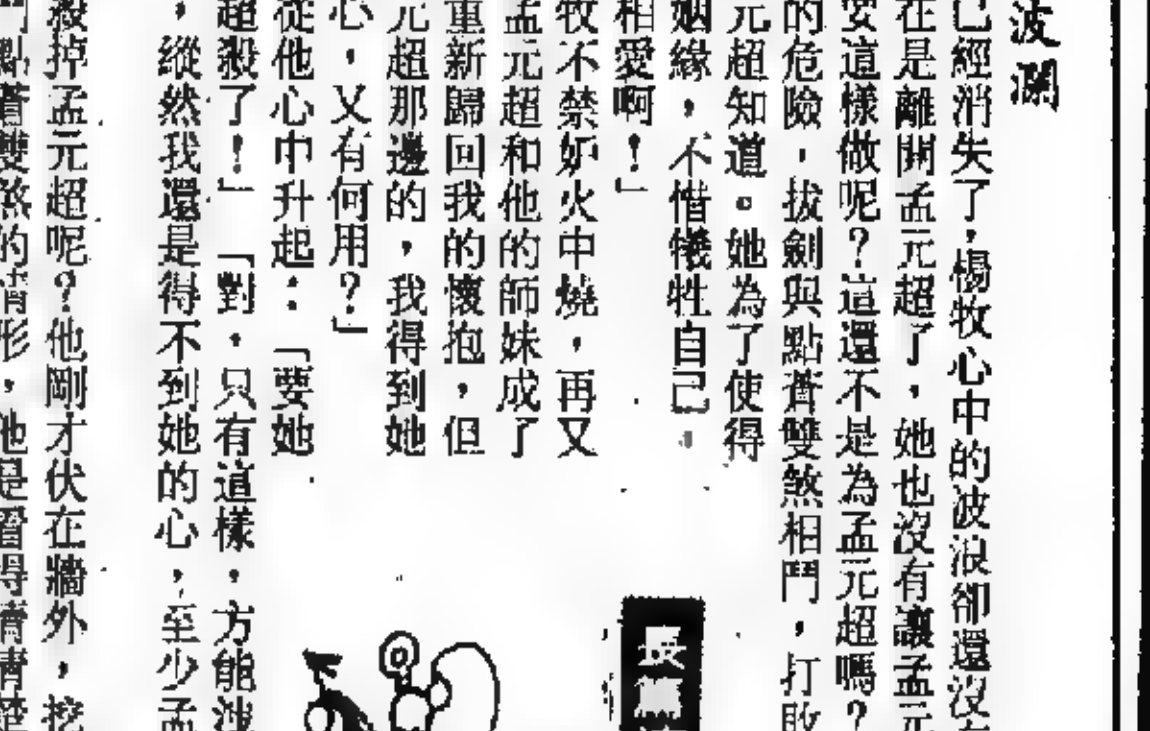 波瀾
已經消失了，楊牧心中的波浪卻還沒有
在是離開孟元超了，她也沒有讓孟元
要這樣做呢？這還不是為孟元超嗎？
的危險，拔劍與點蒼雙煞相鬥，打敗
元超知道。她為了使得
姻緣，不惜犧牲自己。
相愛啊！」
牧不禁妒火中燒，再又
孟元超和他的師妹成了
重新歸回我的懷抱，但
元超那邊的，我得到她
心，又有何用？」
從他心中升起：「要她
超殺了！」「對，只有這樣，方能洩
，縱然我還是得不到她的心，至少孟
殺掉孟元超呢？他剛才伏在牆外，挖
點蒼雙煞的情形，他是看得清清楚
長篇